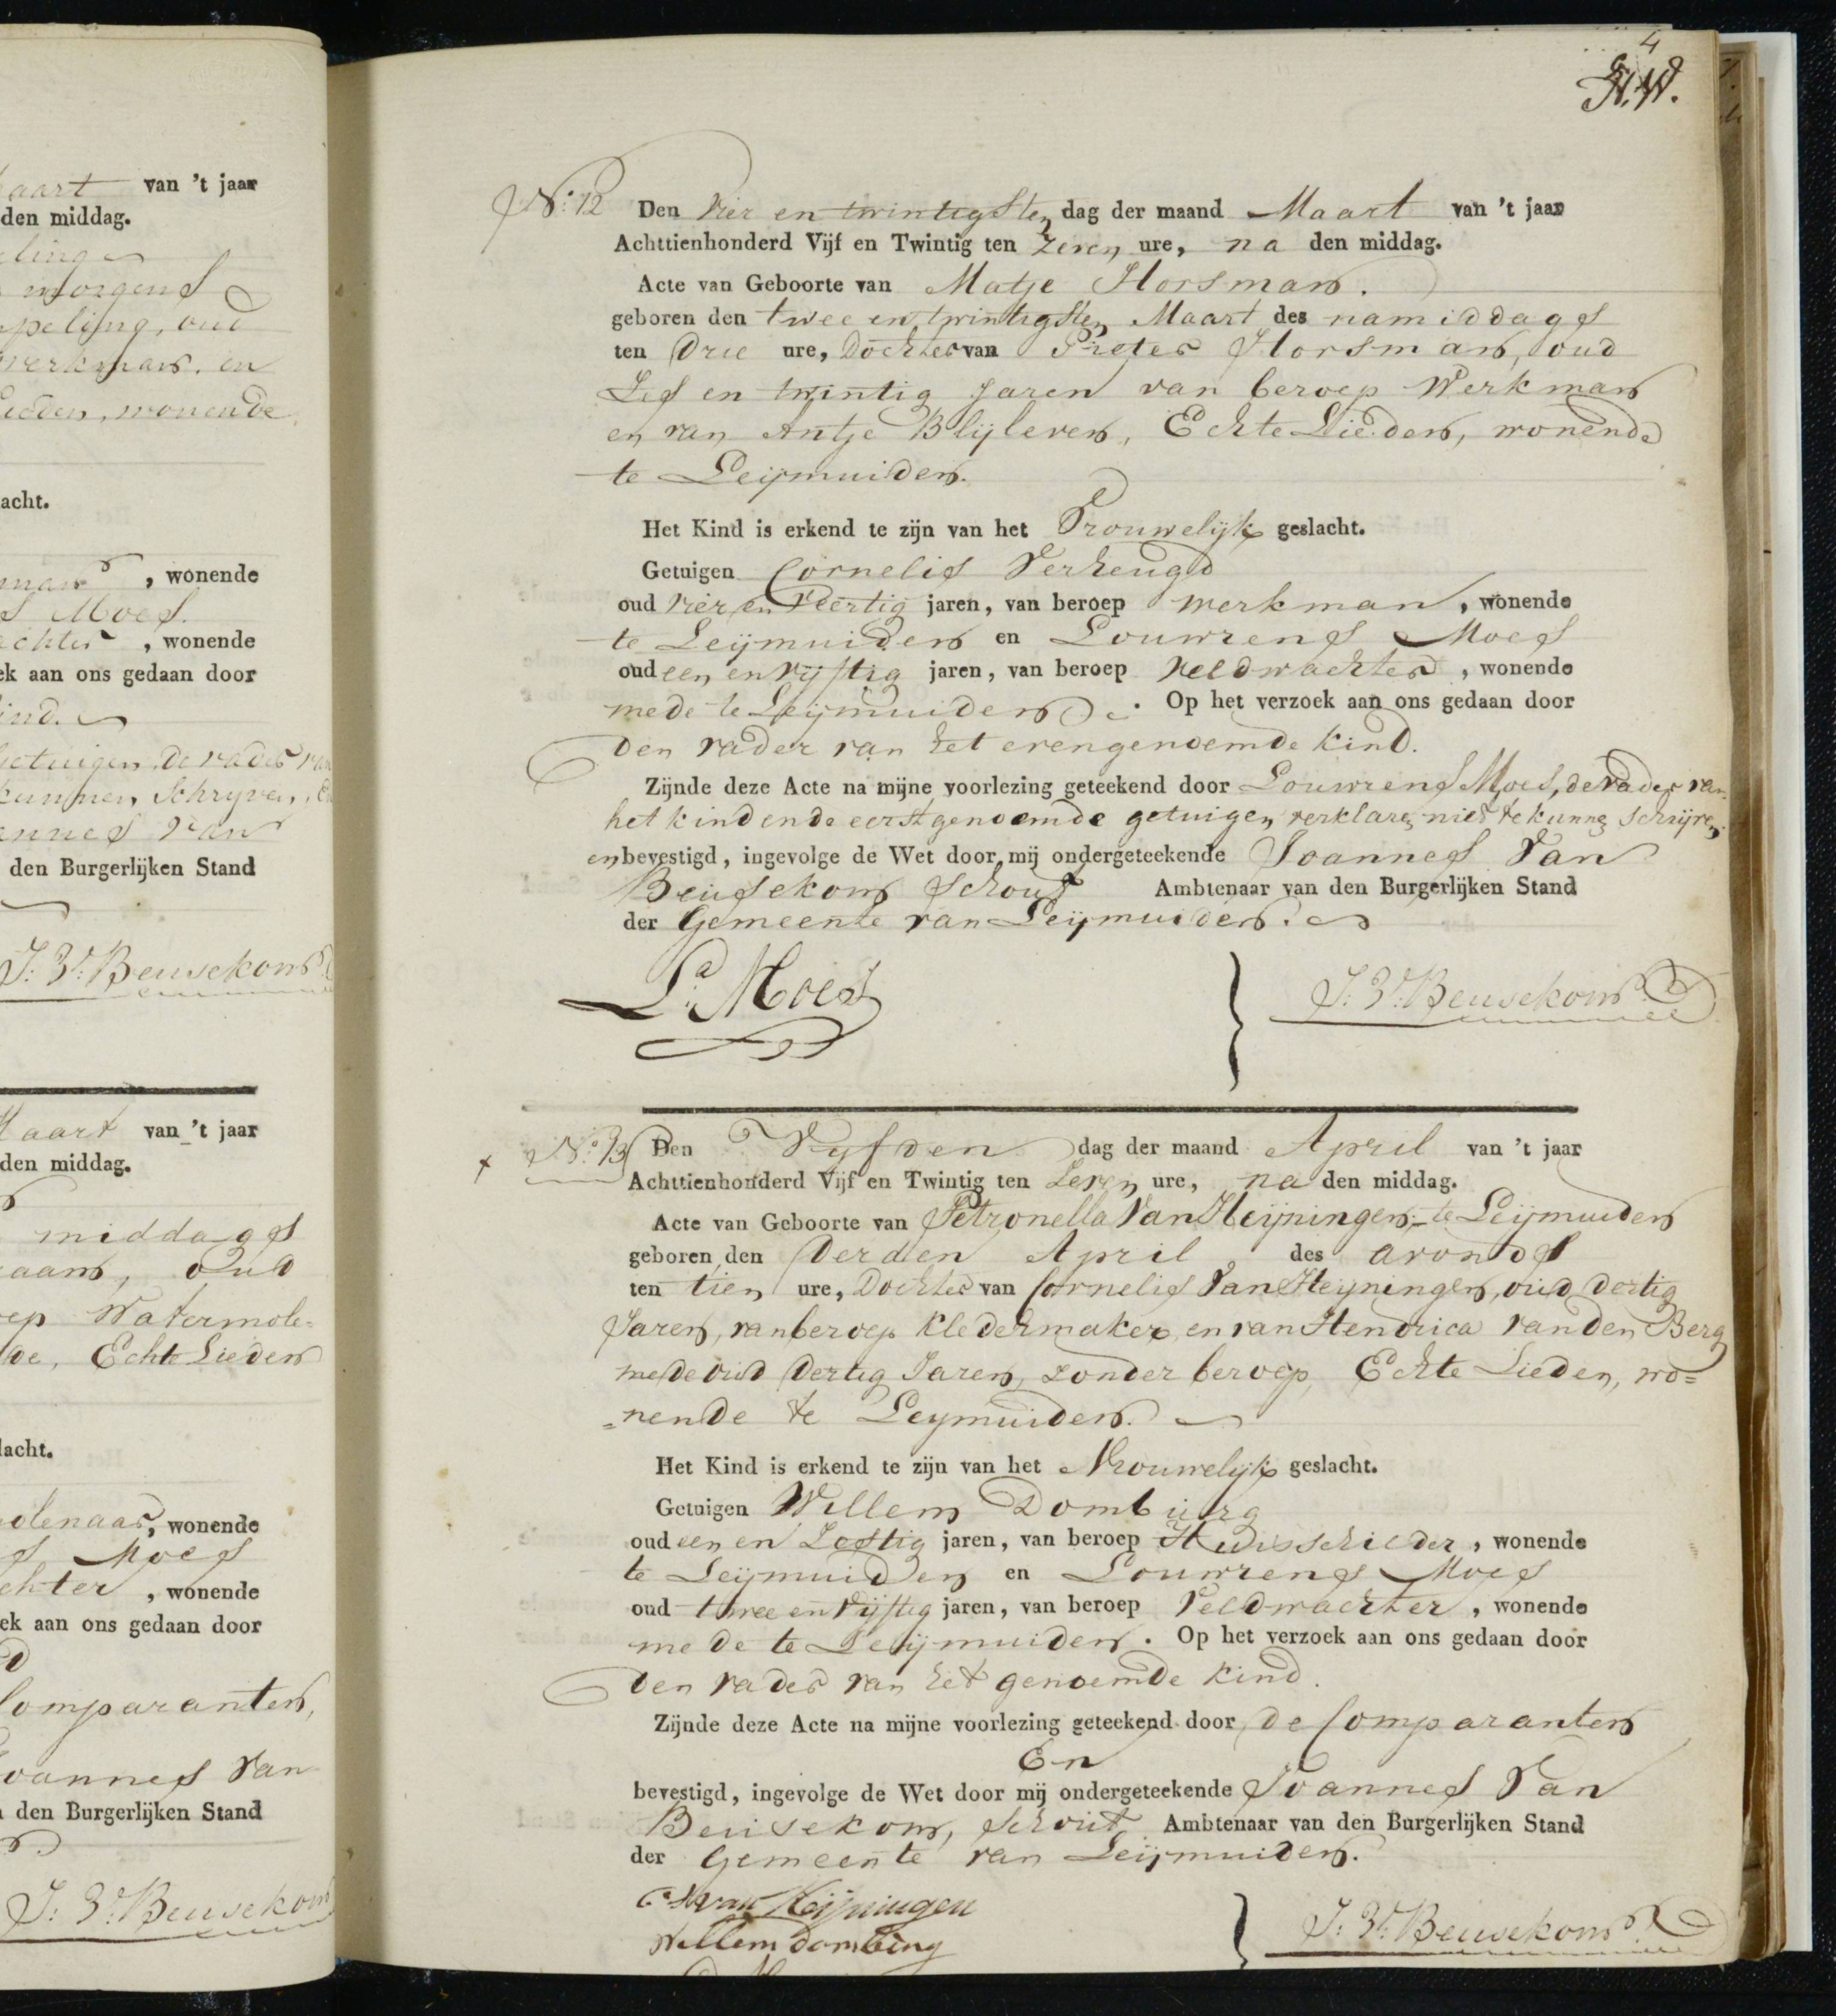 aart van 't jaar
den middag.
morgens
peling, oud
werkman. en
wonende
acht.
man, wonende
s Moes.
achter, wonende
ek aan ons gedaan door
ind.
getuigen, de vader van
kunnen Schryven, En
annes van
den Burgerlijken Stand
J: V: Beusekom
Maart van 't jaar
den middag.
middags
oud
ep Watermole=
de, Echte Lieden
lacht.
olenaar, wonende
s Moes
chter, wonende
ek aan ons gedaan door
Comparanten,
oannes Van
den Burgerlijken Stand
J: V: Beusekom
4
No: 12 Den Vier en twintigsten dag der maand Maart van 't jaar
Achttienhonderd Vijf en Twintig ten zeven ure, na den middag.
Acte van Geboorte van Matje Horsman.
geboren den twee en twintigsten Maart des namiddags
ten Drie ure, Dochter van Pieter Horsman, oud
Zes en twintig Jaren van beroep Werkman
en van Antje Blijleven, Echte Lieden, wonende
te Leijmuiden.
Het Kind is erkend te zijn van het Vrouwelijk geslacht.
Getuigen Cornelis Verheugd
oud Vier en Veertig jaren, van beroep werkman, wonende
te Leijmuiden en Louwrens Moes
oud een en vijftig jaren, van beroep veldwachter, wonende
mede te Leijmuiden. Op het verzoek aan ons gedaan door
den vader van het evengenoemde kind.
Zijnde deze Acte na mijne voorlezing geteekend door Louwrens Moes, de vader van
het kind en de eerstgenoemde getuigen verklaren niet te kunnen schrijven
en bevestigd, ingevolge de Wet door mij ondergeteekende Joannes Van
Beusekom Schout Ambtenaar van den Burgerlijken Stand
der Gemeente van Leijmuiden.
Ls. Moes
J: V: Beusekom
No: 13 Den Vyfden dag der maand April van 't jaar
Achttienhonderd Vijf en Twintig ten Zeven ure, na den middag.
Acte van Geboorte van Petronella Van Heijningen, te Leijmuiden
geboren den Derden April des avonds
ten tien ure, Dochter van Cornelis Van Heyningen, oud dertig
Jaren, van beroep kledermaker, en van Hendrica van den Berg
mede oud Dertig Jaren, zonder beroep, Echte Lieden, wo=
=nende te Leymuiden.
Het Kind is erkend te zijn van het Vrouwelijk geslacht.
Getuigen Willem Domburg
oud een en Zestig jaren, van beroep Huisschilder, wonende
te Leijmuiden en Louwrens Moes
oud twee en vijftig jaren, van beroep Veldwachter, wonende
mede te Leijmuiden. Op het verzoek aan ons gedaan door
den vader van het genoemde kind.
Zijnde deze Acte na mijne voorlezing geteekend door de Comparanten
En
bevestigd, ingevolge de Wet door mij ondergeteekende Joannes Van
Beusekom, Schout Ambtenaar van den Burgerlijken Stand
der Gemeente van Leijmuiden.
van Heijningen
Willem Domburg
J: V: Beusekom